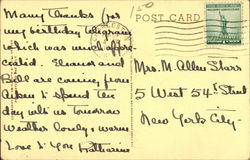 Many thanks for
my birthday telegram
which was much appre-
ciated. Eleanor and
Bill are coming from
Aiken to spend ten
day with us Tomorrow
Weather lovely & warm
Love to you Katharine
150
POST CARD
Mrs. M. Allen Starr
5 West 54th Street
New York City-